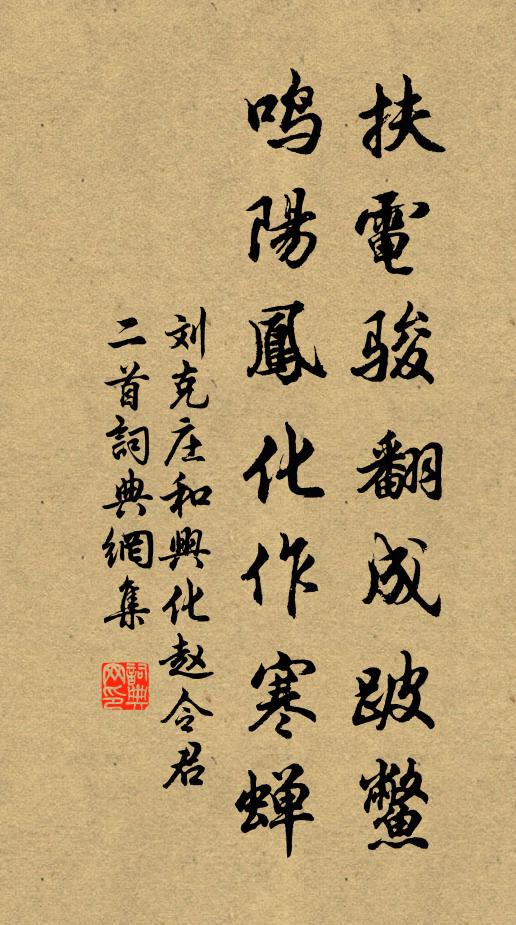 扶電骏翻成跛鱉
鸣陽鳳化作寒蝉
刘克庄和興化赵令君
二首詞典網集
詞典网印